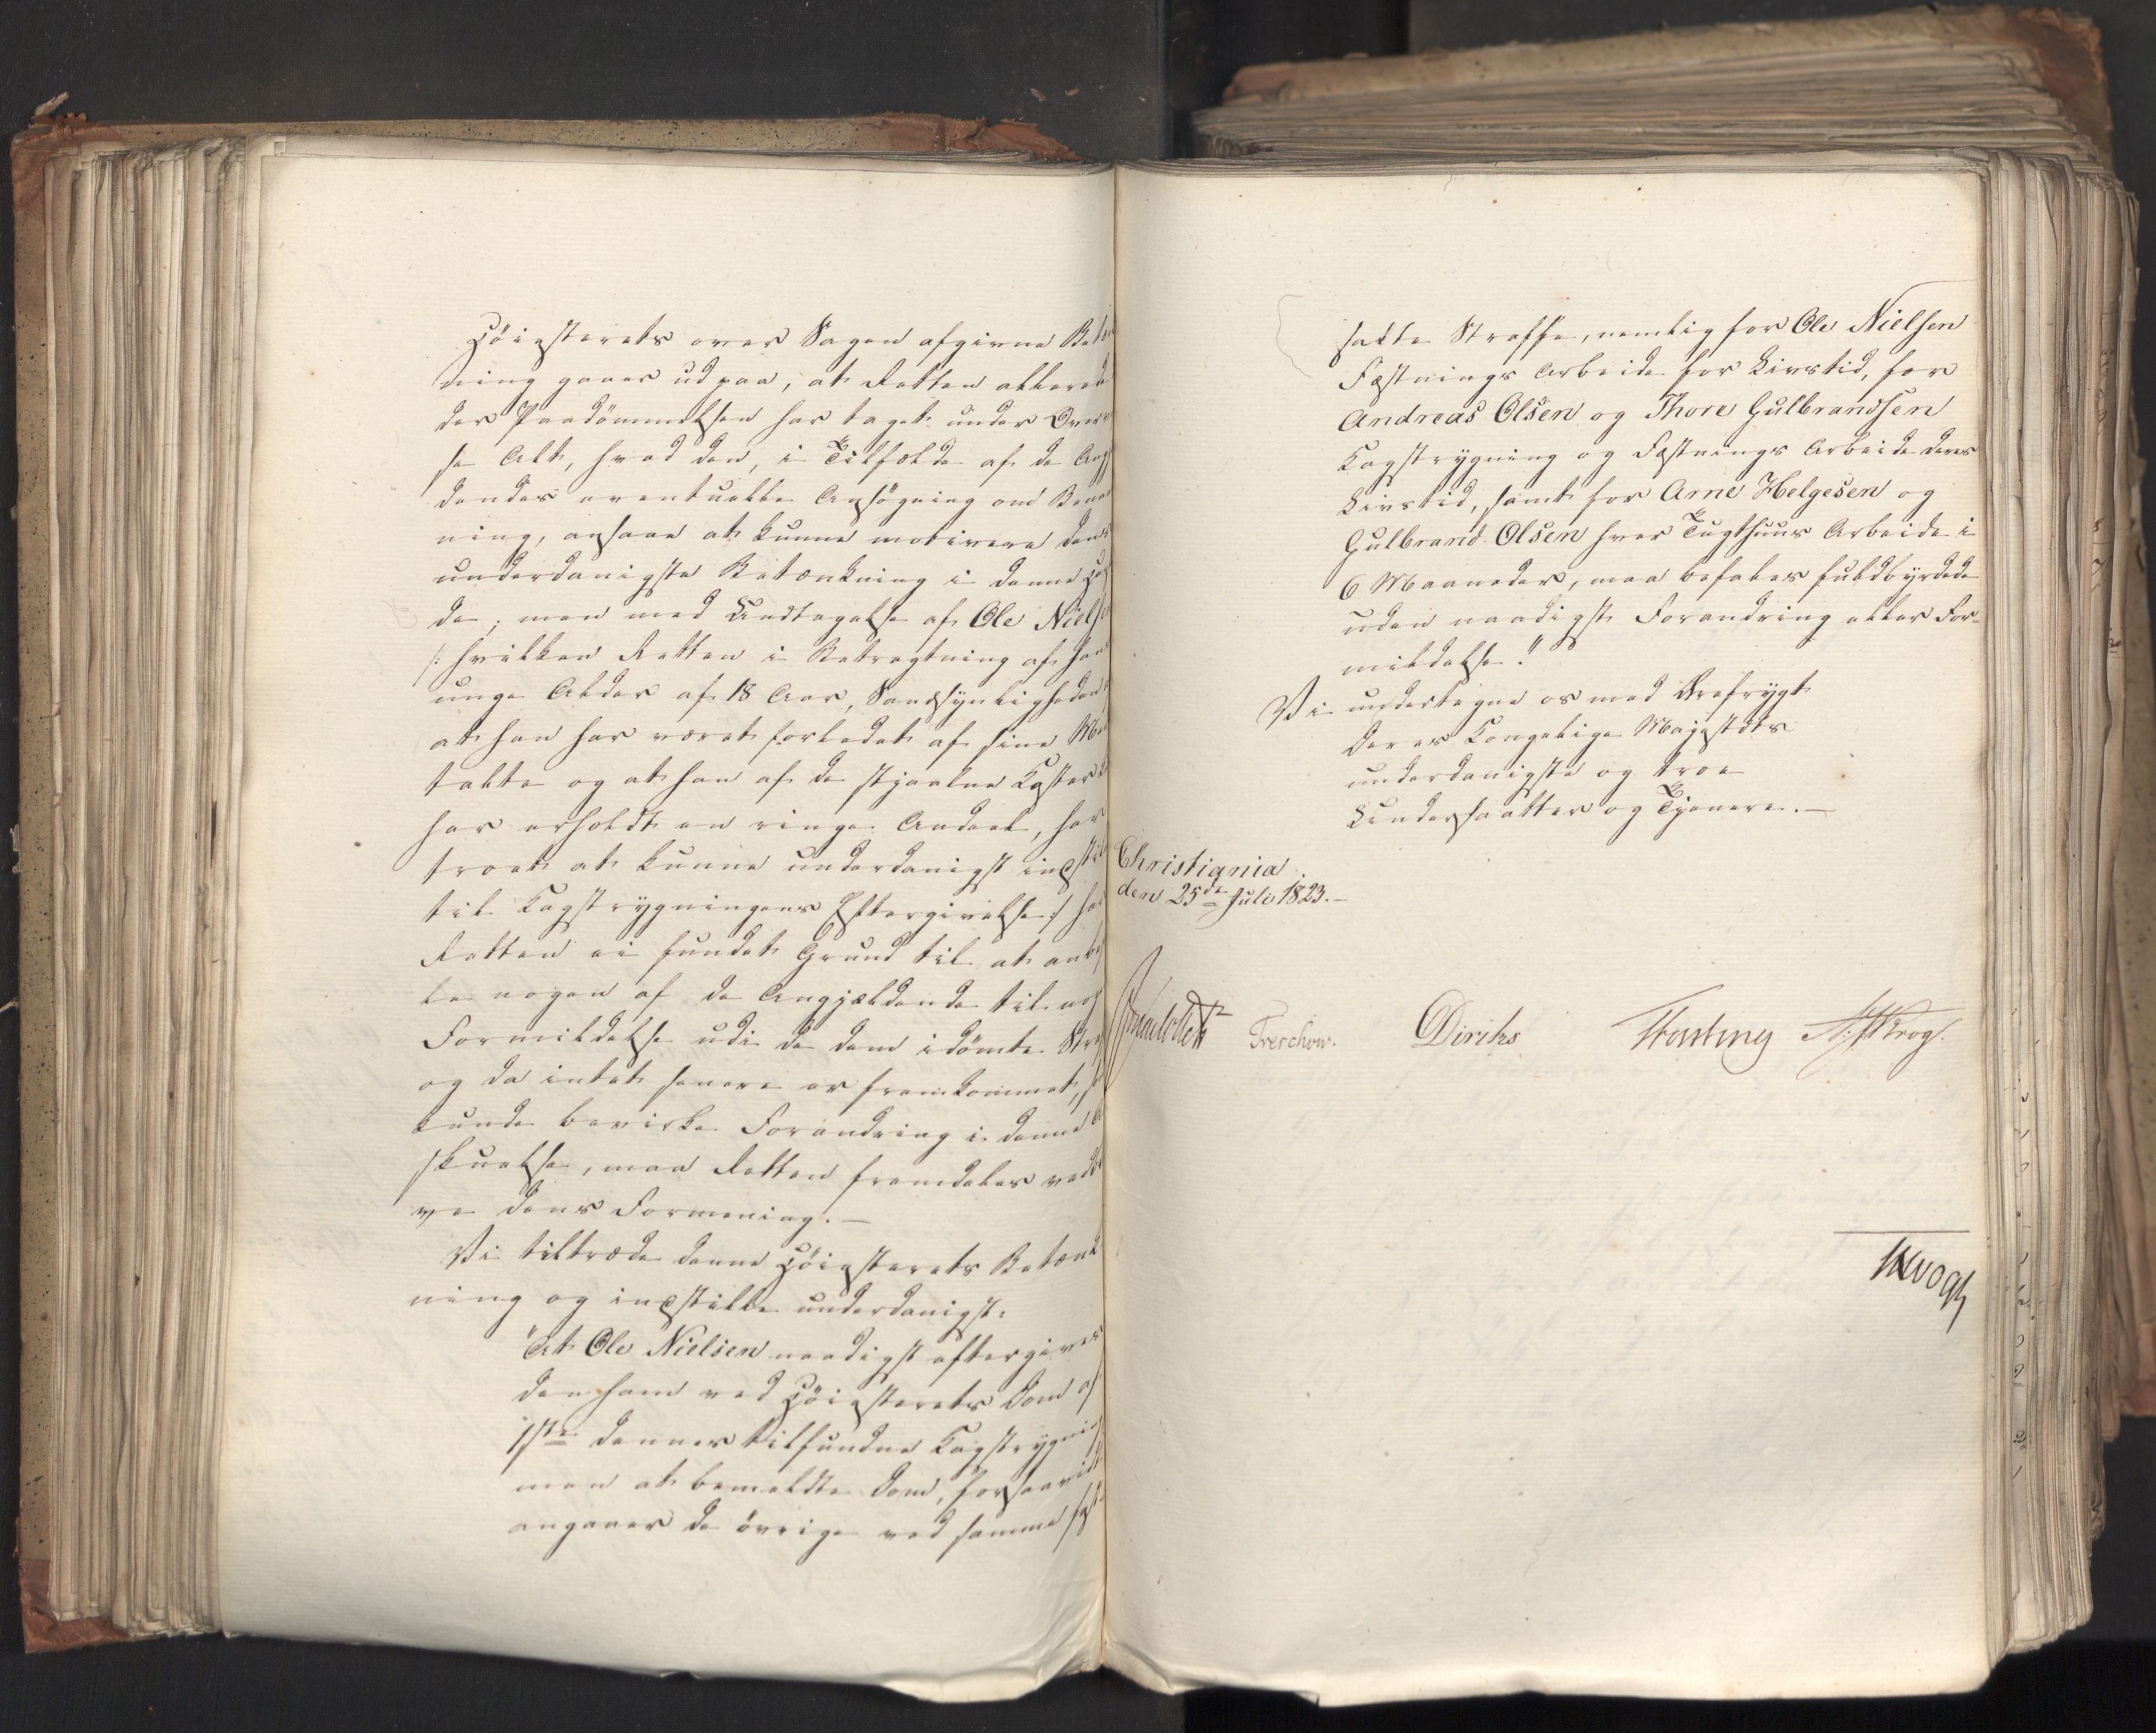 Höiesterets over Sagen afgivne Betæn
ning gaaer ud paa, at Retten allerede
der Paadömmelsen har taget under Overv
se Alt, hvad den, i Tilfælde af de Ang
dendes eventuelle Ansøgning om Benaa
ning, ansaae at kunne motivere dens
underdanigste Betænkning i denne Hen
de; men med Undtagelse af Ole Niels
/: hvilken Retten i Betragtning af hans
unge Alder af 18 Aar, Sandsynligheden
at han har været forledet af sine Med
talte og at han af de stjaalne Koster
har erholdt en ringe Andeel, har
troet at kunne underdanigst indstil
til Kagstrygningens Eftergivelse :/ har
Retten ei fundet Grund til at anbef
le nogen af de Angjældende til nog
Formildelse udi de dem idömte Stra
og da intet senere er fremkommet, s
kunde bevirke Forandring i denne A
skuelse, maa Retten fremdeles vedbl
ve dens Formening. —
Vi tiltræde denne Höiesterets Betænk
ning og indstille underdanigst:
"At Ole Nielsen naadigst eftergives
den ham ved Höiesterets Dom af
1ste dennes tilfundne Kagstrygning
men at bemeldte Dom, forsaavidt
angaaer de övrige ved samme fast
satte Straffe, nemlig for Ole Nielsen
Fæstnings Arbeide for Livstid, for
Andreas Olsen og Thore Gulbrandsen
Kagstrygning og Fæstnings Arbeide deres
Livstid, samt for Arne Helgesen og
Gulbrand Olsen hver Tugthuus Arbeide i
6 Maaneder, maa befales fuldbyrdede
uden naadigst Forandring eller For-
mildelse."
Vi undertegne os med Ærefrygt
Deres Kongelige Majestæts
underdanigste og troe
Undersaatter og Tjenere. —
Christiania
den 25de Juli 1823. —
Treschow. Diriks Fasting Krog.
JHVogt